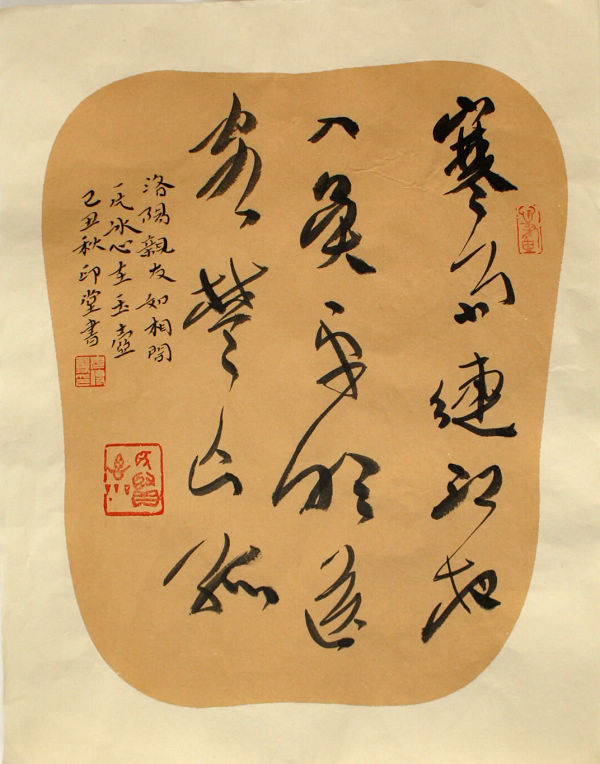 寒雨連江夜
入吳平明送
客楚山孤
洛陽親友如相問
一片冰心在玉壺
己丑秋印堂書